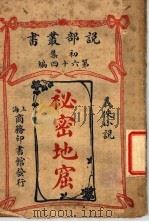 說部叢書
初集第六十四編
義俠小說
祕密地窟
上海商務印書館發行